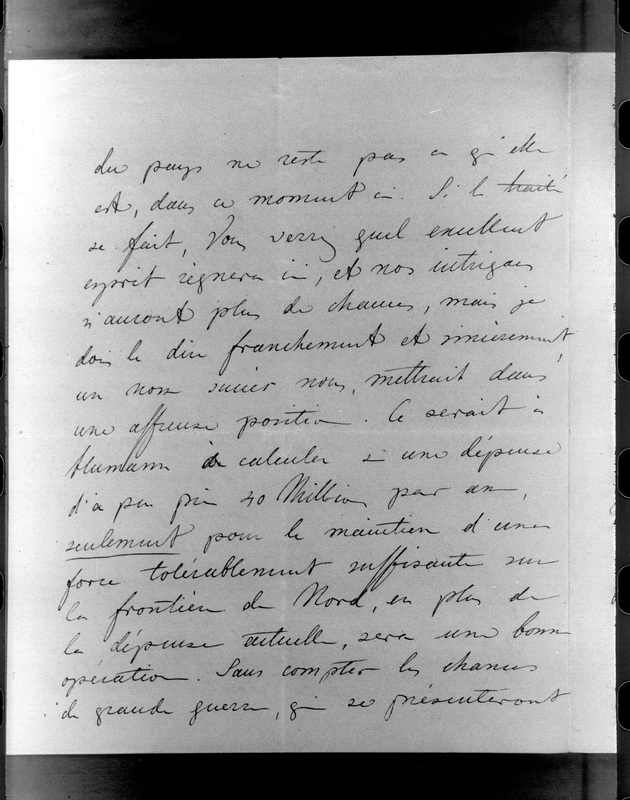 du pays ne reste pas ce qu'elle
est, dans ce moment ci. Si le traité
se fait, Vous verrez quel excellent
esprit règnera ici, et nos intrigans
n'auront plus de chances, mais je
dois le dire franchement et sincèrement,
un non succès nous, mettrait dans
une affreuse position. Ce serait à
Humann de calculer si une dépense
d'à peu près 40 Millions par an,
seulement pour le maintien d'une
force tolérablement suffisante sur
la frontière du Nord, en plus de
la dépense actuelle, sera une bonne
opération. Sans compter les chances
de grande guerre, qui se présenteront